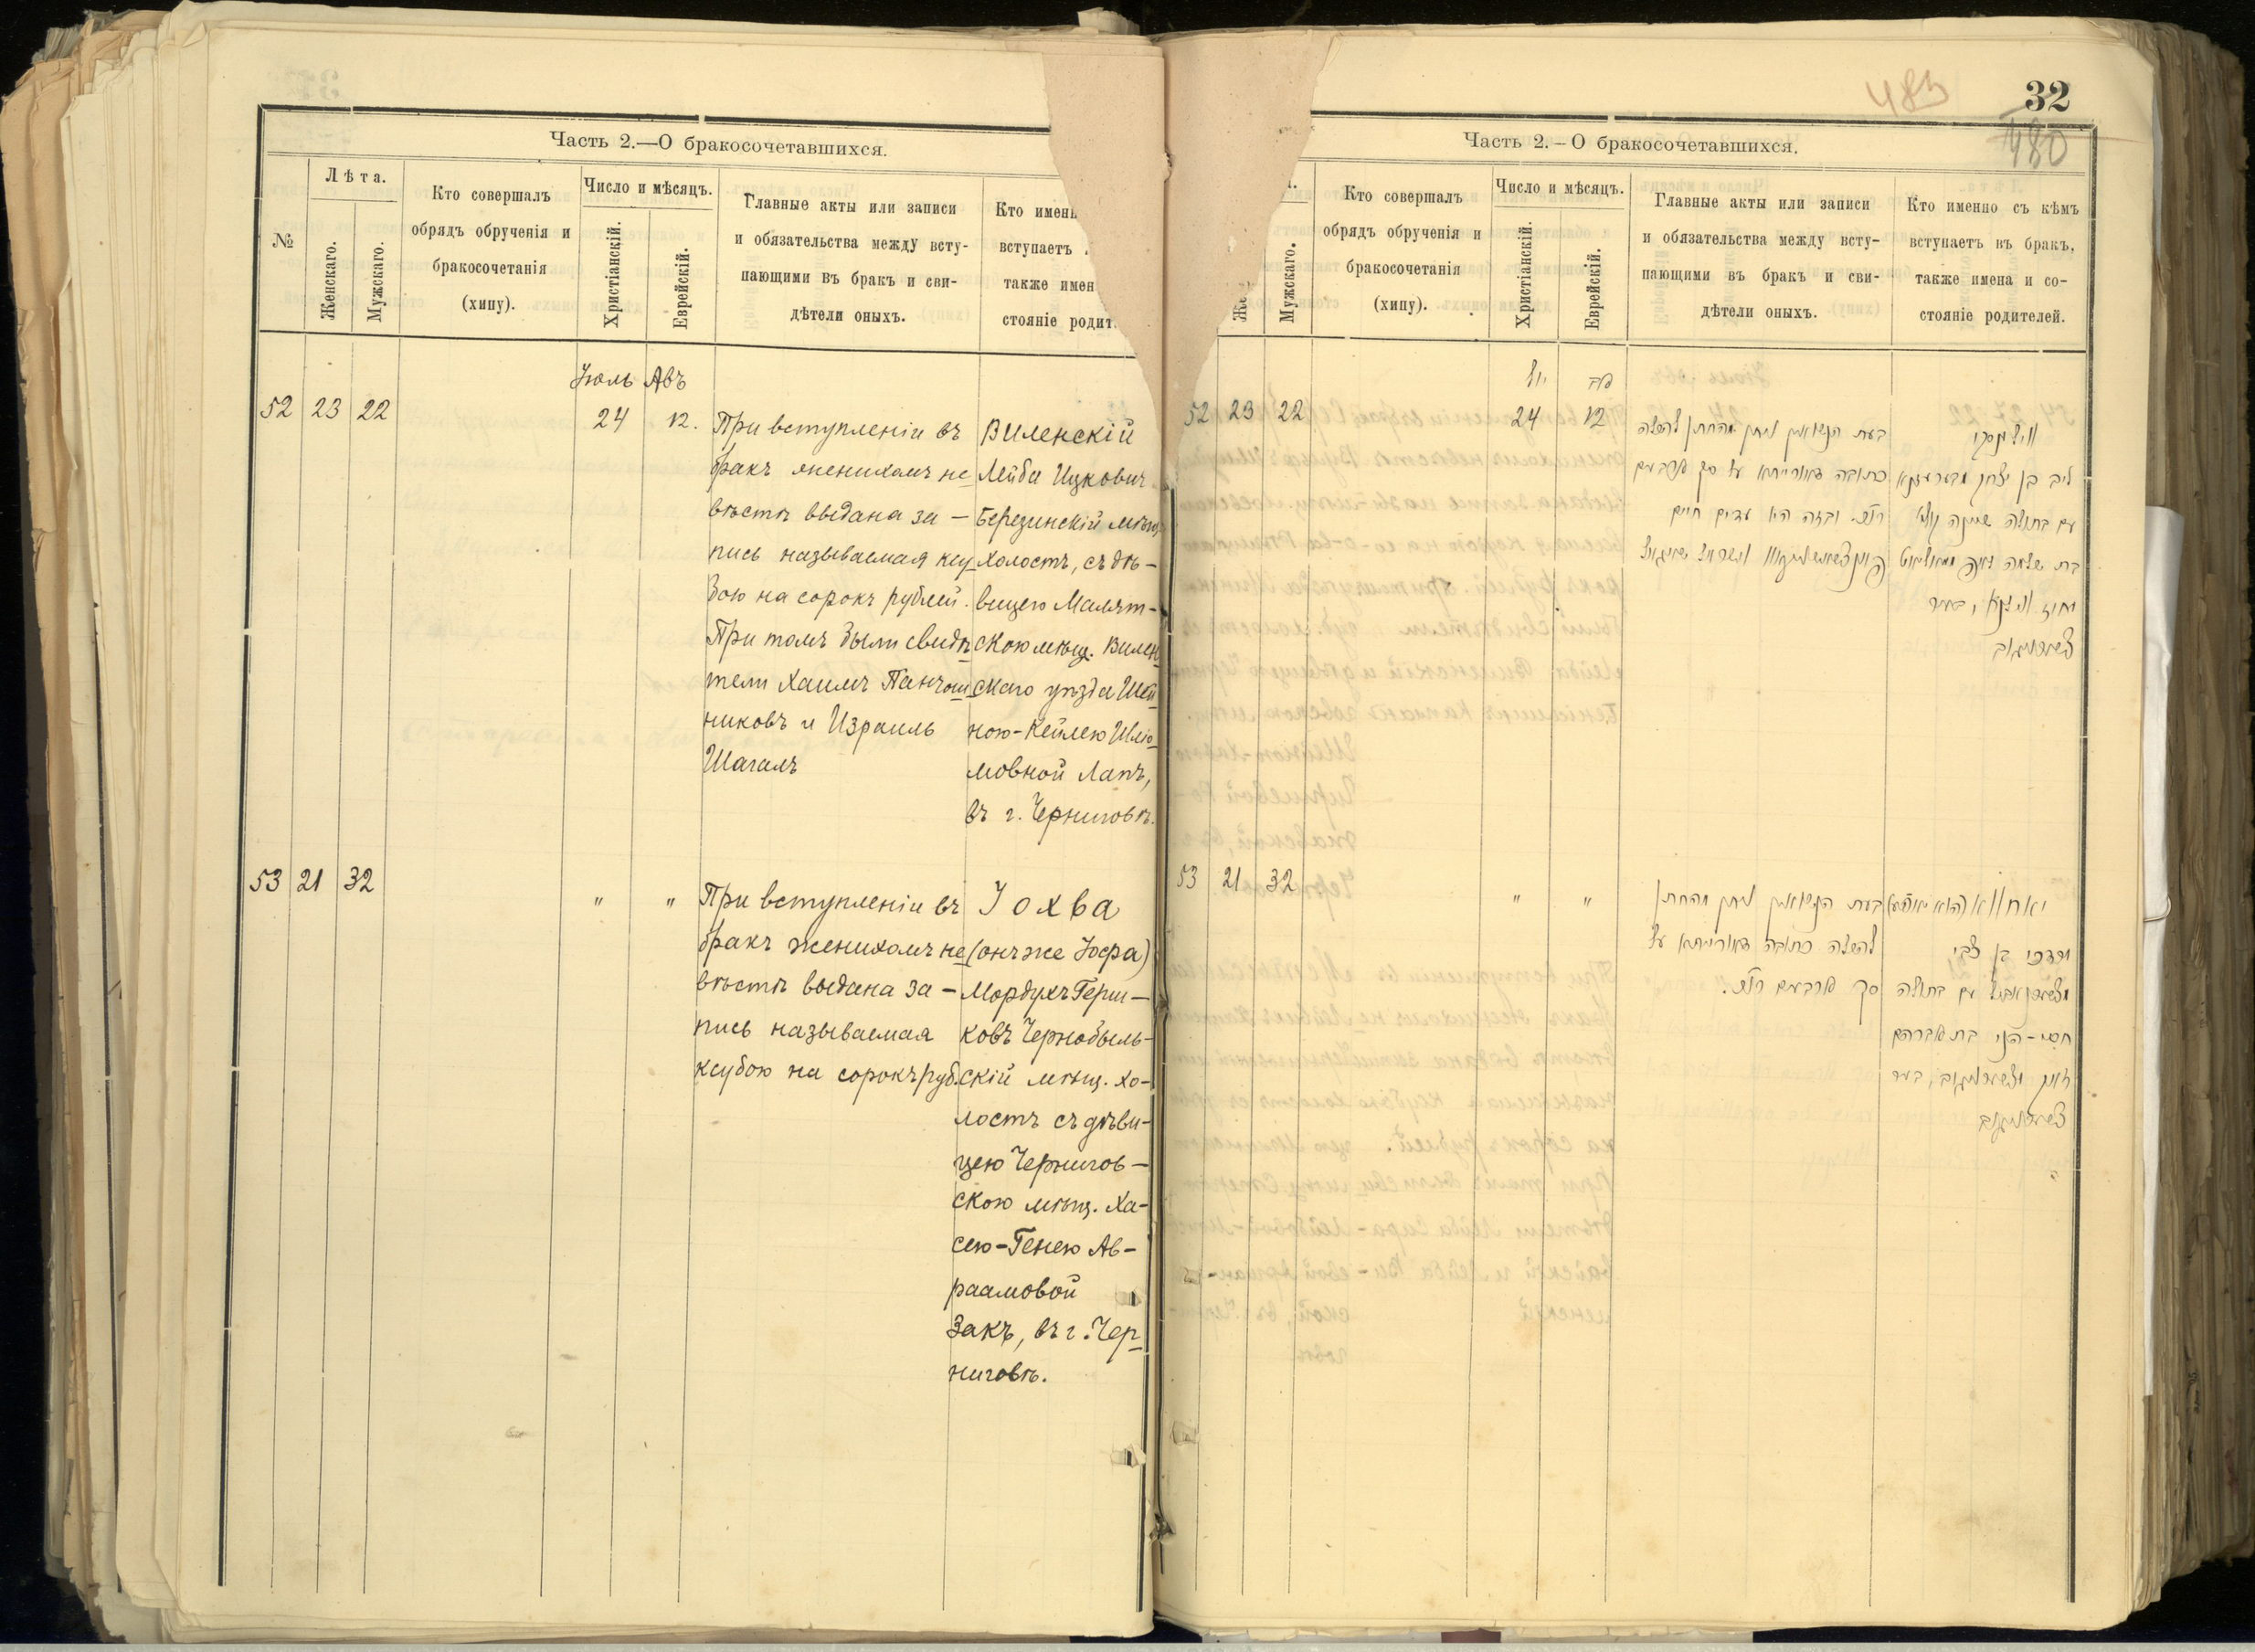 Часть 2.—О бракосочетавшихся.
№
Лѣта.
Женскаго.
Мужскаго.
Кто совершалъ
обрядъ обрученія и
бракосочетанія
(хипу).
Число и мѣсяцъ.
Христіанскій.
Еврейскій.
Главные акты или записи
и обязательства между всту-
пающими въ бракъ и сви-
дѣтели оныхъ.
Кто имен
вступаетъ
также имен
стояніе родит
Іюль Авъ
52 23 22
24 12.
При вступленіи въ
бракъ женихомъ не-
вѣстѣ выдана за-
пись называемая ксу-
бою на сорокъ рублей.
При томъ были свидѣ-
тели Хаимъ Панчош-
никовъ и Израиль
Шагалъ
Виленскій
Лейба Ицкович
Березинскій мѣщ.
холостъ, съ дѣ-
вицею Малят-
скою мѣщ. Вилен-
скаго уѣзда Шей-
ною-Кейлею Шлио-
мовной Лапъ,
въ г. Черниговѣ.
53 21 32
" "
При вступленіи въ
бракъ женихомъ не-
вѣстѣ выдана за-
пись называемая
ксубою на сорокъ руб.
Іохва
(онъ же Іосфа)
Мордухъ Герш-
ковъ Чернобыль-
скій мѣщ. хо-
лостъ съ дѣви-
цею Чернигов-
скою мѣщ. Ха-
сею-Генею Ав-
раамовой
Закъ, въ г. Чер-
ниговѣ.
483
32
480
Часть 2.-О бракосочетавшихся.
Мужскаго.
Кто совершалъ
обрядъ обрученія и
бракосочетанія
(хипу).
Число и мѣсяцъ.
Христіанскій.
Еврейскій.
Главные акты или записи
и обязательства между всту-
пающими въ бракъ и сви-
дѣтели оныхъ.
Кто именно съ кѣмъ
вступаетъ въ бракъ,
также имена и со-
стояніе родителей.
יול
52 23 22
24 12
בעת הנשואין ליתן מהחתן להכלה
כתובה דאורייתא על סך ארבעים
ווילענסקי
ליב בן יצחק
עם בתולה שיינה
בת שלמה
53 21 32
" "
בעת הנשואין ליתן מהחתן
להכלה כתובה דאורייתא על
סך ארבעים
מרדכי בן צבי
עם בתולה
בת אברהם